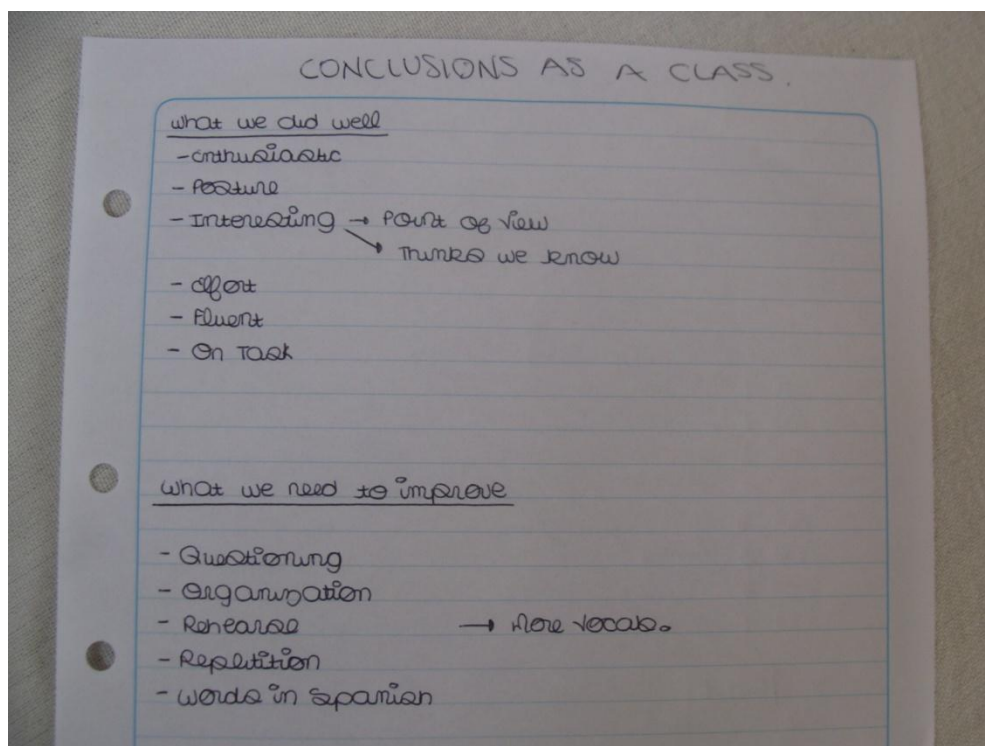 CONCLUSIONS AS A CLASS.
what we did well
- Enthusiastic
- Posture
- Interesting → Point of view
→ Thinks we know
- Effort
- Fluent
- On Task
what we need to improve
- Questioning
- Organization
- Rehearse → More vocab.
- Repetition
- words in spanish